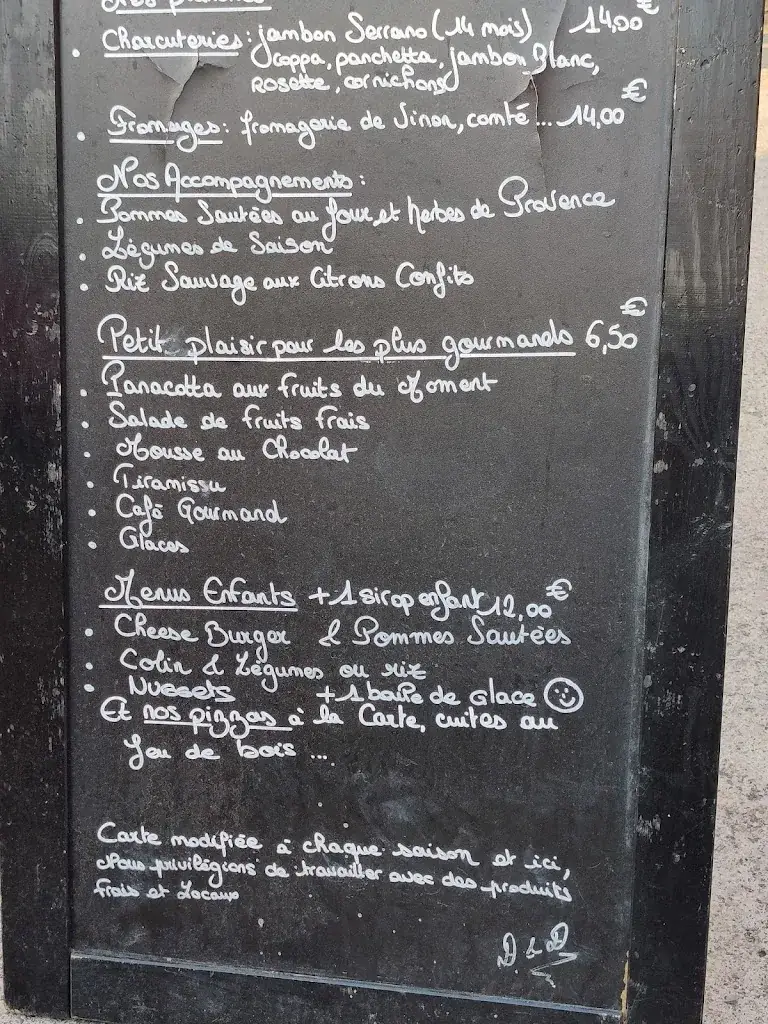 Nos planches
• Charcuteries : jambon Serrano (14 mois) 14,00€
coppa, panchetta, jambon Blanc,
Rosette, cornichons
• Fromages : fromagerie de Sinon, comté ... 14,00€
Nos Accompagnements :
• Pommes Sautées au four et herbes de Provence
• Légumes de Saison
• Riz Sauvage aux Citrons Confits
Petit plaisir pour les plus gourmands 6,50€
• Panacotta aux fruits du Moment
• Salade de fruits frais
• Mousse au Chocolat
• Tiramissu
• Café Gourmand
• Glaces
Menus Enfants +1 sirop enfant 12,00€
• Cheese Burger & Pommes Sautées
• Colin & Légumes ou riz
• Nuggets +1 boule de Glace ☺
Et nos pizzas à la Carte, cuites au
feu de bois ...
Carte modifiée à chaque saison et ici,
Nous privilégions de travailler avec des produits
frais et Locaux
D & D